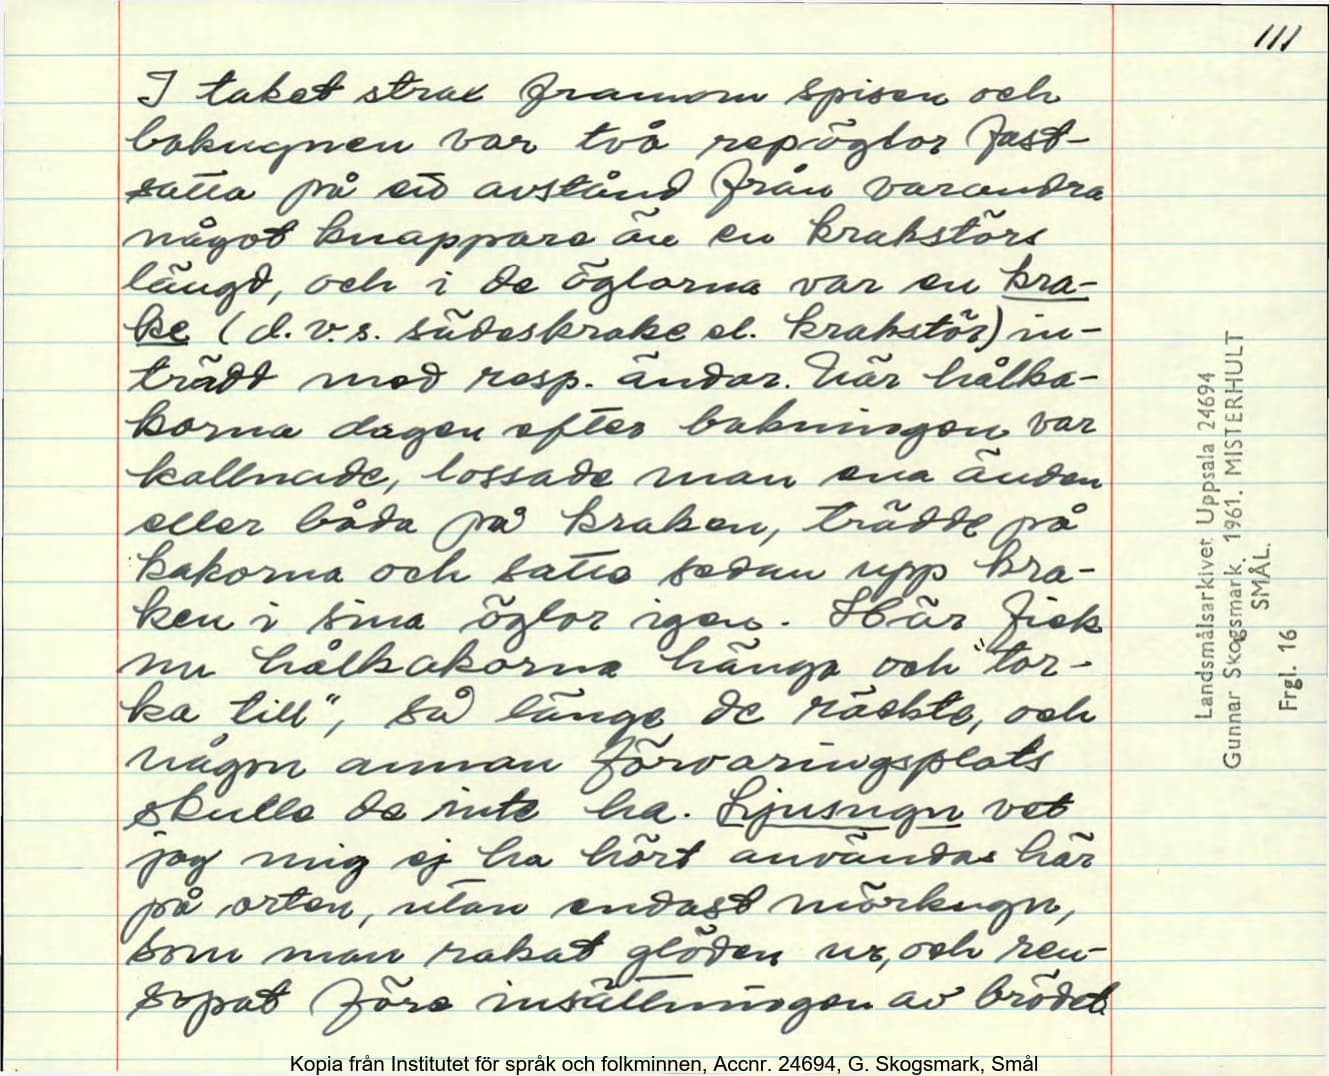 111
I taket strax framom spisen och
bakugnen var två repöglor fast-
satta på ett avstånd från varandra
något knappare än en krakstörs
längd, och i de öglorna var en kra-
ke (d.v.s. sädeskrake el. krakstör) in-
trädd med resp. ändar. När hålka-
korna dagen efter bakningen var
kallnade, lossade man ena änden
eller båda på kraken, trädde på
kakorna och satte sedan upp kra-
ken i sina öglor igen. Här fick
nu hålkakorna hänga och "tor-
ka till", så länge de räckte, och
någon annan förvaringsplats
skulle de inte ha. Ljusugn vet
jag mig ej ha hört användas här
på orten, utan endast mörkugn,
som man rakat glöden ur, och ren-
sopat före insättningen av brödet.
Landsmålsarkivet Uppsala 24694
Gunnar Skogsmark. 1961. MISTERHULT
SMÅL.
Frgl. 16
Kopia från Institutet för språk och folkminnen, Accnr. 24694, G. Skogsmark, Smål